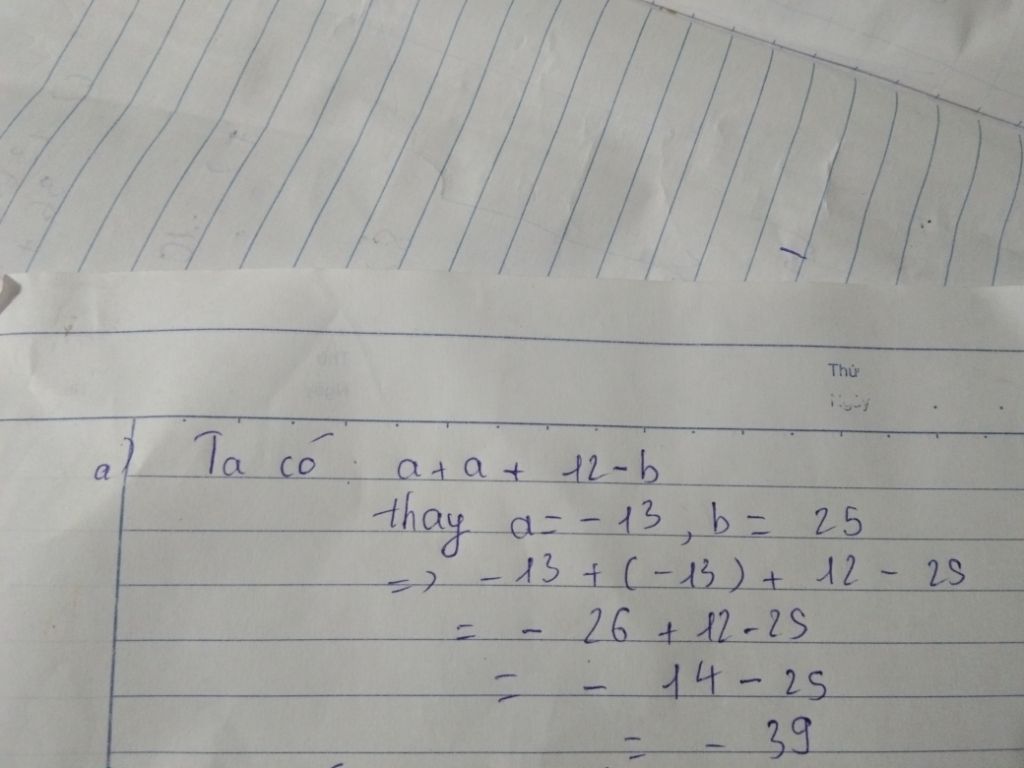 Thứ
Ngày
a) Ta có: a + a + 12 - b
thay a = - 13, b = 25
=> - 13 + (-13) + 12 - 25
= - 26 + 12 - 25
= - 14 - 25
= - 39